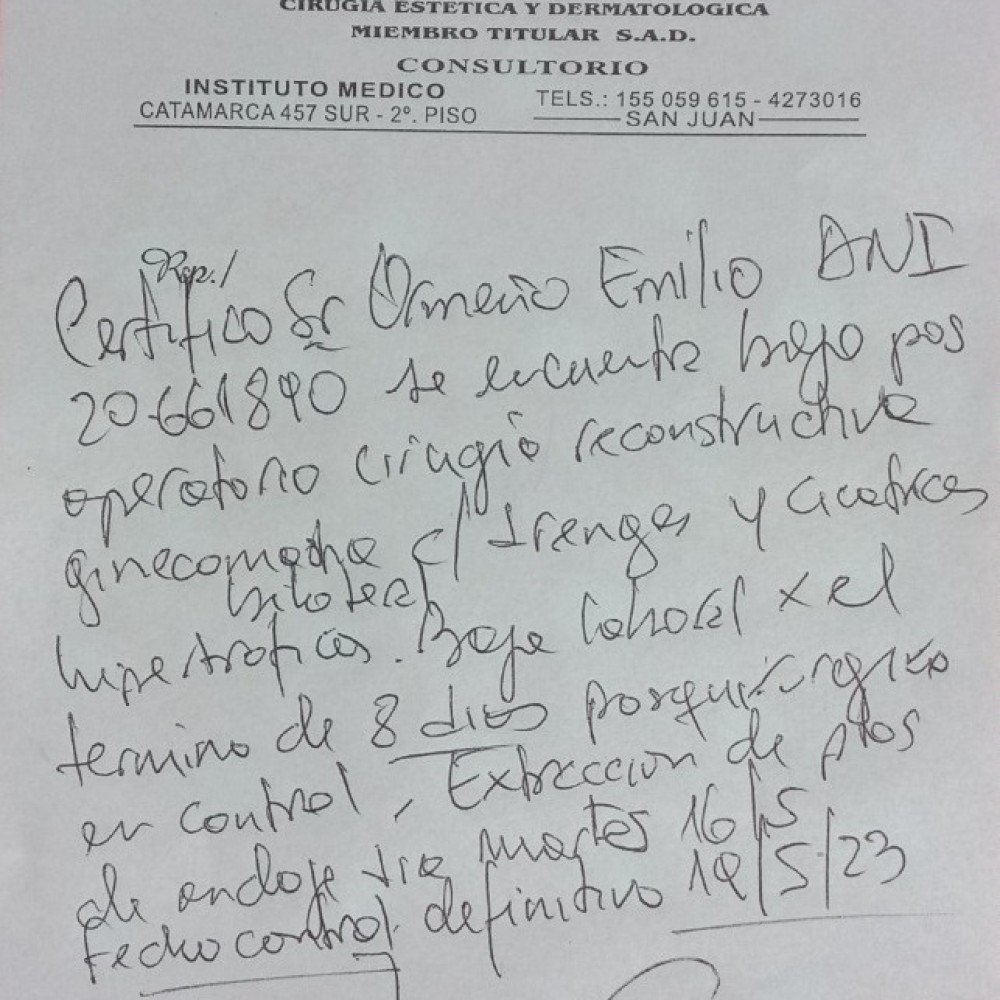 CIRUGIA ESTETICA Y DERMATOLOGICA
MIEMBRO TITULAR S.A.D.
CONSULTORIO
INSTITUTO MEDICO
CATAMARCA 457 SUR - 2º. PISO
TELS.: 155 059 615 - 4273016
SAN JUAN
Rep./
Certifico Sr Ormeño Emilio DNI
20.661890 se encuentra bajo pos
operatorio cirugia reconstructiva
ginecomastia c/ drenges y cicatrices
bilateral
hipertroficas. Baja laboral x el
termino de 8 dias posquirurgico
en control, Extraccion de ptos
de anclaje dia martes 16/5
Fecha control definitivo 19/5/23